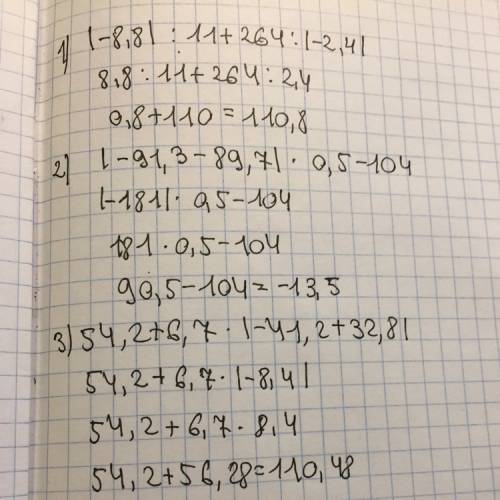 1) |-8,8| : 11 + 264 : |-2,4|
8,8 : 11 + 264 : 2,4
0,8 + 110 = 110,8
2) |-91,3 - 89,7| · 0,5 - 104
|-181| · 0,5 - 104
181 · 0,5 - 104
90,5 - 104 = -13,5
3) 54,2 + 6,7 · |-41,2 + 32,8|
54,2 + 6,7 · |-8,4|
54,2 + 6,7 · 8,4
54,2 + 56,28 = 110,48